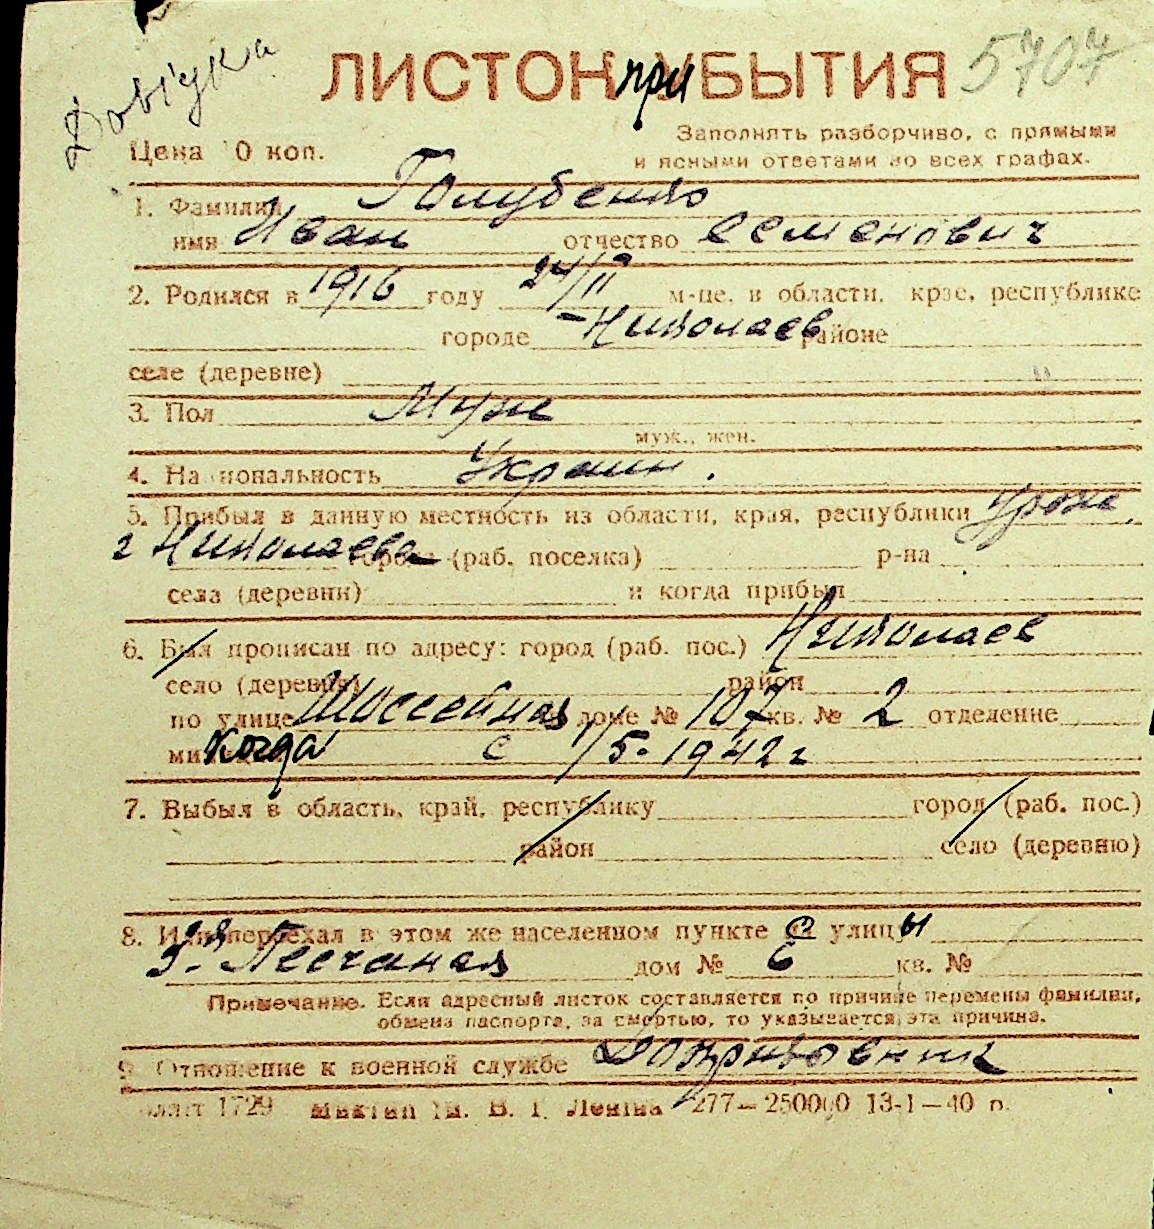 Довідка
ЛИСТОК при УБЫТИЯ 5707
Цена 10 коп.
Заполнять разборчиво, с прямыми
и ясными ответами во всех графах.
1. Фамилия Голубенко
имя Иван отчество Семенович
2. Родился в 1916 году 24/II м-це, в области, крае, республике
городе – Николаев районе
селе (деревне)
3. Пол Муж
муж., жен.
4. Национальность Украин.
5. Прибыл в данную местность из области, края, республики Уроже.
г Николаева города (раб. поселка) р-на
села (деревни) и когда прибыл
6. Был прописан по адресу: город (раб. пос.) Николаев
село (деревня) район
по улице Шоссейная доме № 107 кв. № 2 отделение
ми когда с 1/5-1942 г
7. Выбыл в область, край, республику город (раб. пос.)
район село (деревню)
8. Или переехал в этом же населенном пункте с улицы
3-я Песчаная дом № 6 кв. №
Примечание. Если адресный листок составляется по причине перемены фамилии,
обмена паспорта, за смертью, то указывается эта причина.
9. Отношение к военной службе Допризовник
1729 ім. В. І. Леніна 277—250000 13-I—40 р.